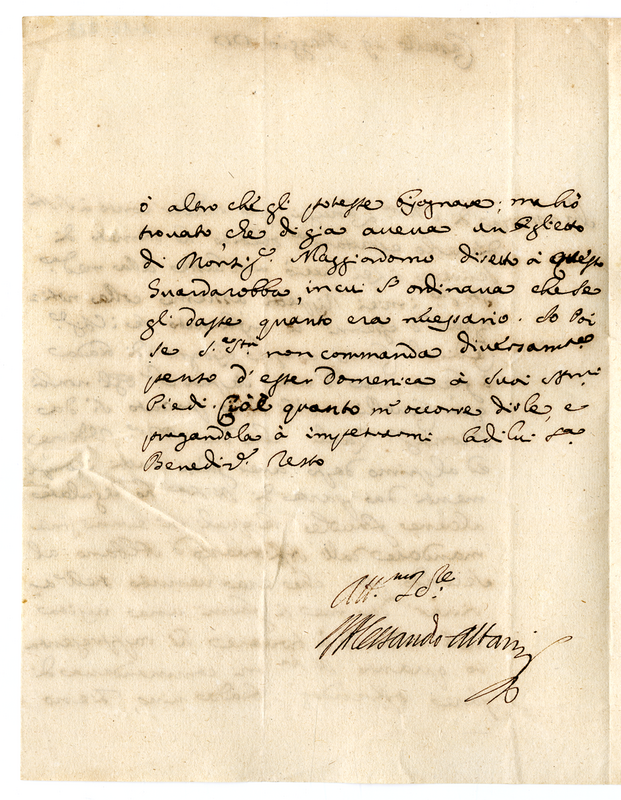 ò altro che gli potesse bisognare; ma hò
trovato, che di gia aveva un biglietto
di Monsig.r Maggiordomo diretto à questo
Guardarobba, in cui s'ordinava che se
gli dasse quanto era necessario. Io poi
se S. non commanda diversam.te
penso d'esser Domenica à suoi SSmi
Piedi. Ciò è quanto m'occorre dirle, e
pregandola à impetrarmi la di lui S.a
Benediz.e resto
Aff.mo
Alessandro Altani